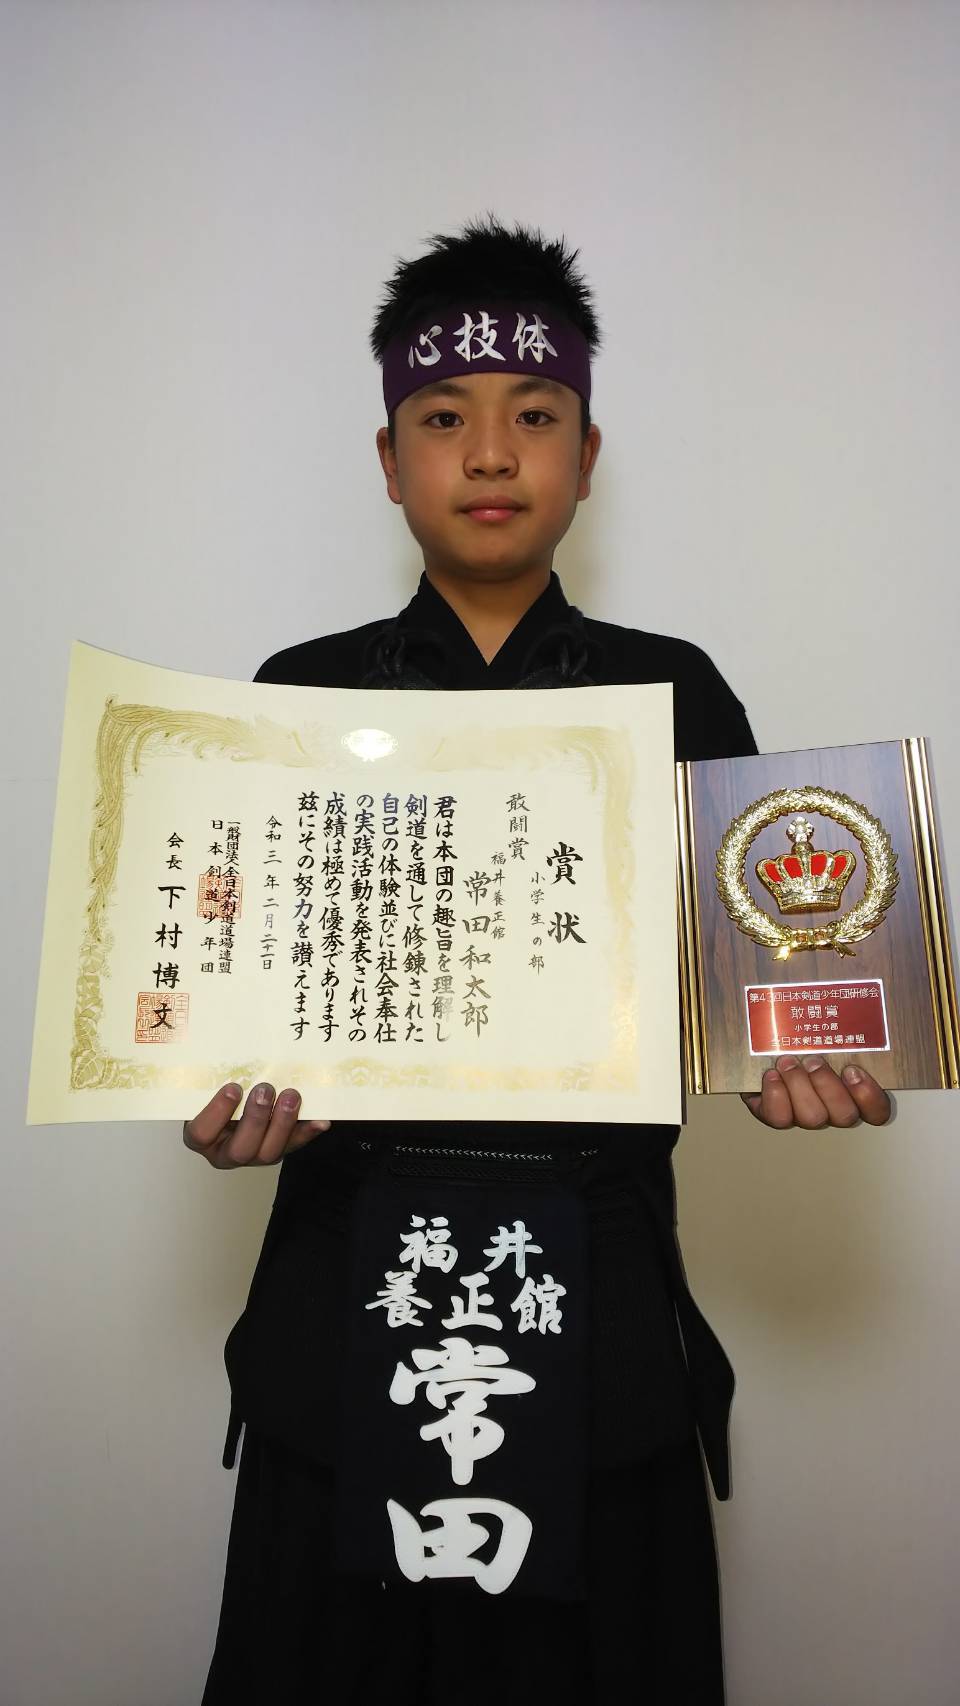 心技体
賞状
小学生の部
敢闘賞
福井養正館
常田和太郎
君は本団の趣旨を理解し
剣道を通して修錬された
自己の体験並びに社会奉仕
の実践活動を発表されその
成績は極めて優秀であります
茲にその努力を讃えます
令和三年二月二十一日
一般財団法人全日本剣道道場連盟
日本剣道少年団
会長 下村博文
回日本剣道少年団研修会
敢闘賞
小学生の部
全日本剣道道場連盟
福井
養正館
常田